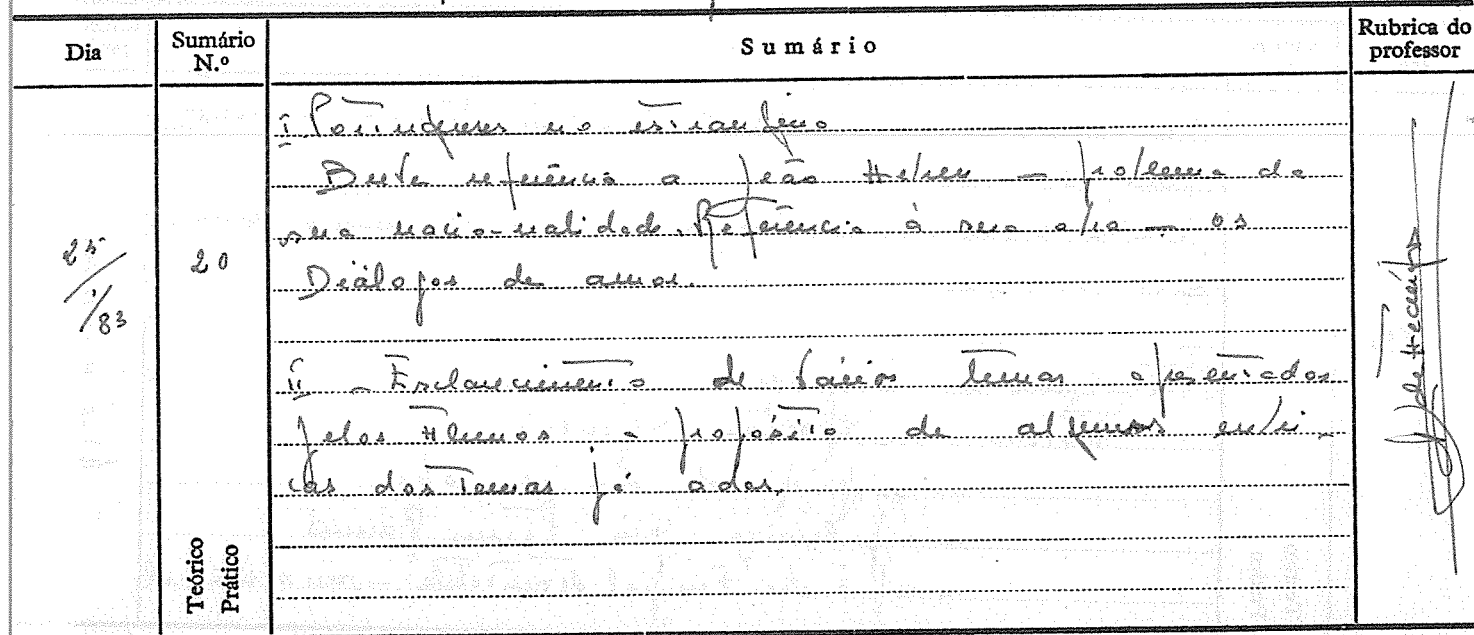 Dia
Sumário N.º
Sumário
Rubrica do professor
I Portugueses no estrangeiro
Breve referência a Leão Hebreu – problema da
sua nacio-nalidade. Referência à sua obra – os
25/1/83
20
Diálogos de amor.
II – Esclarecimento de vários temas apresentados
pelos Alunos, a propósito de algumas
dos Temas já dados.
Teórico
Prático